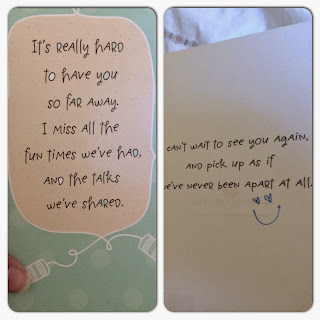 It's really hard
to have you
so far away.
I miss all the
fun times we've had,
and the talks
we've shared.
can't wait to see you again,
and pick up as if
we've never been apart at all.